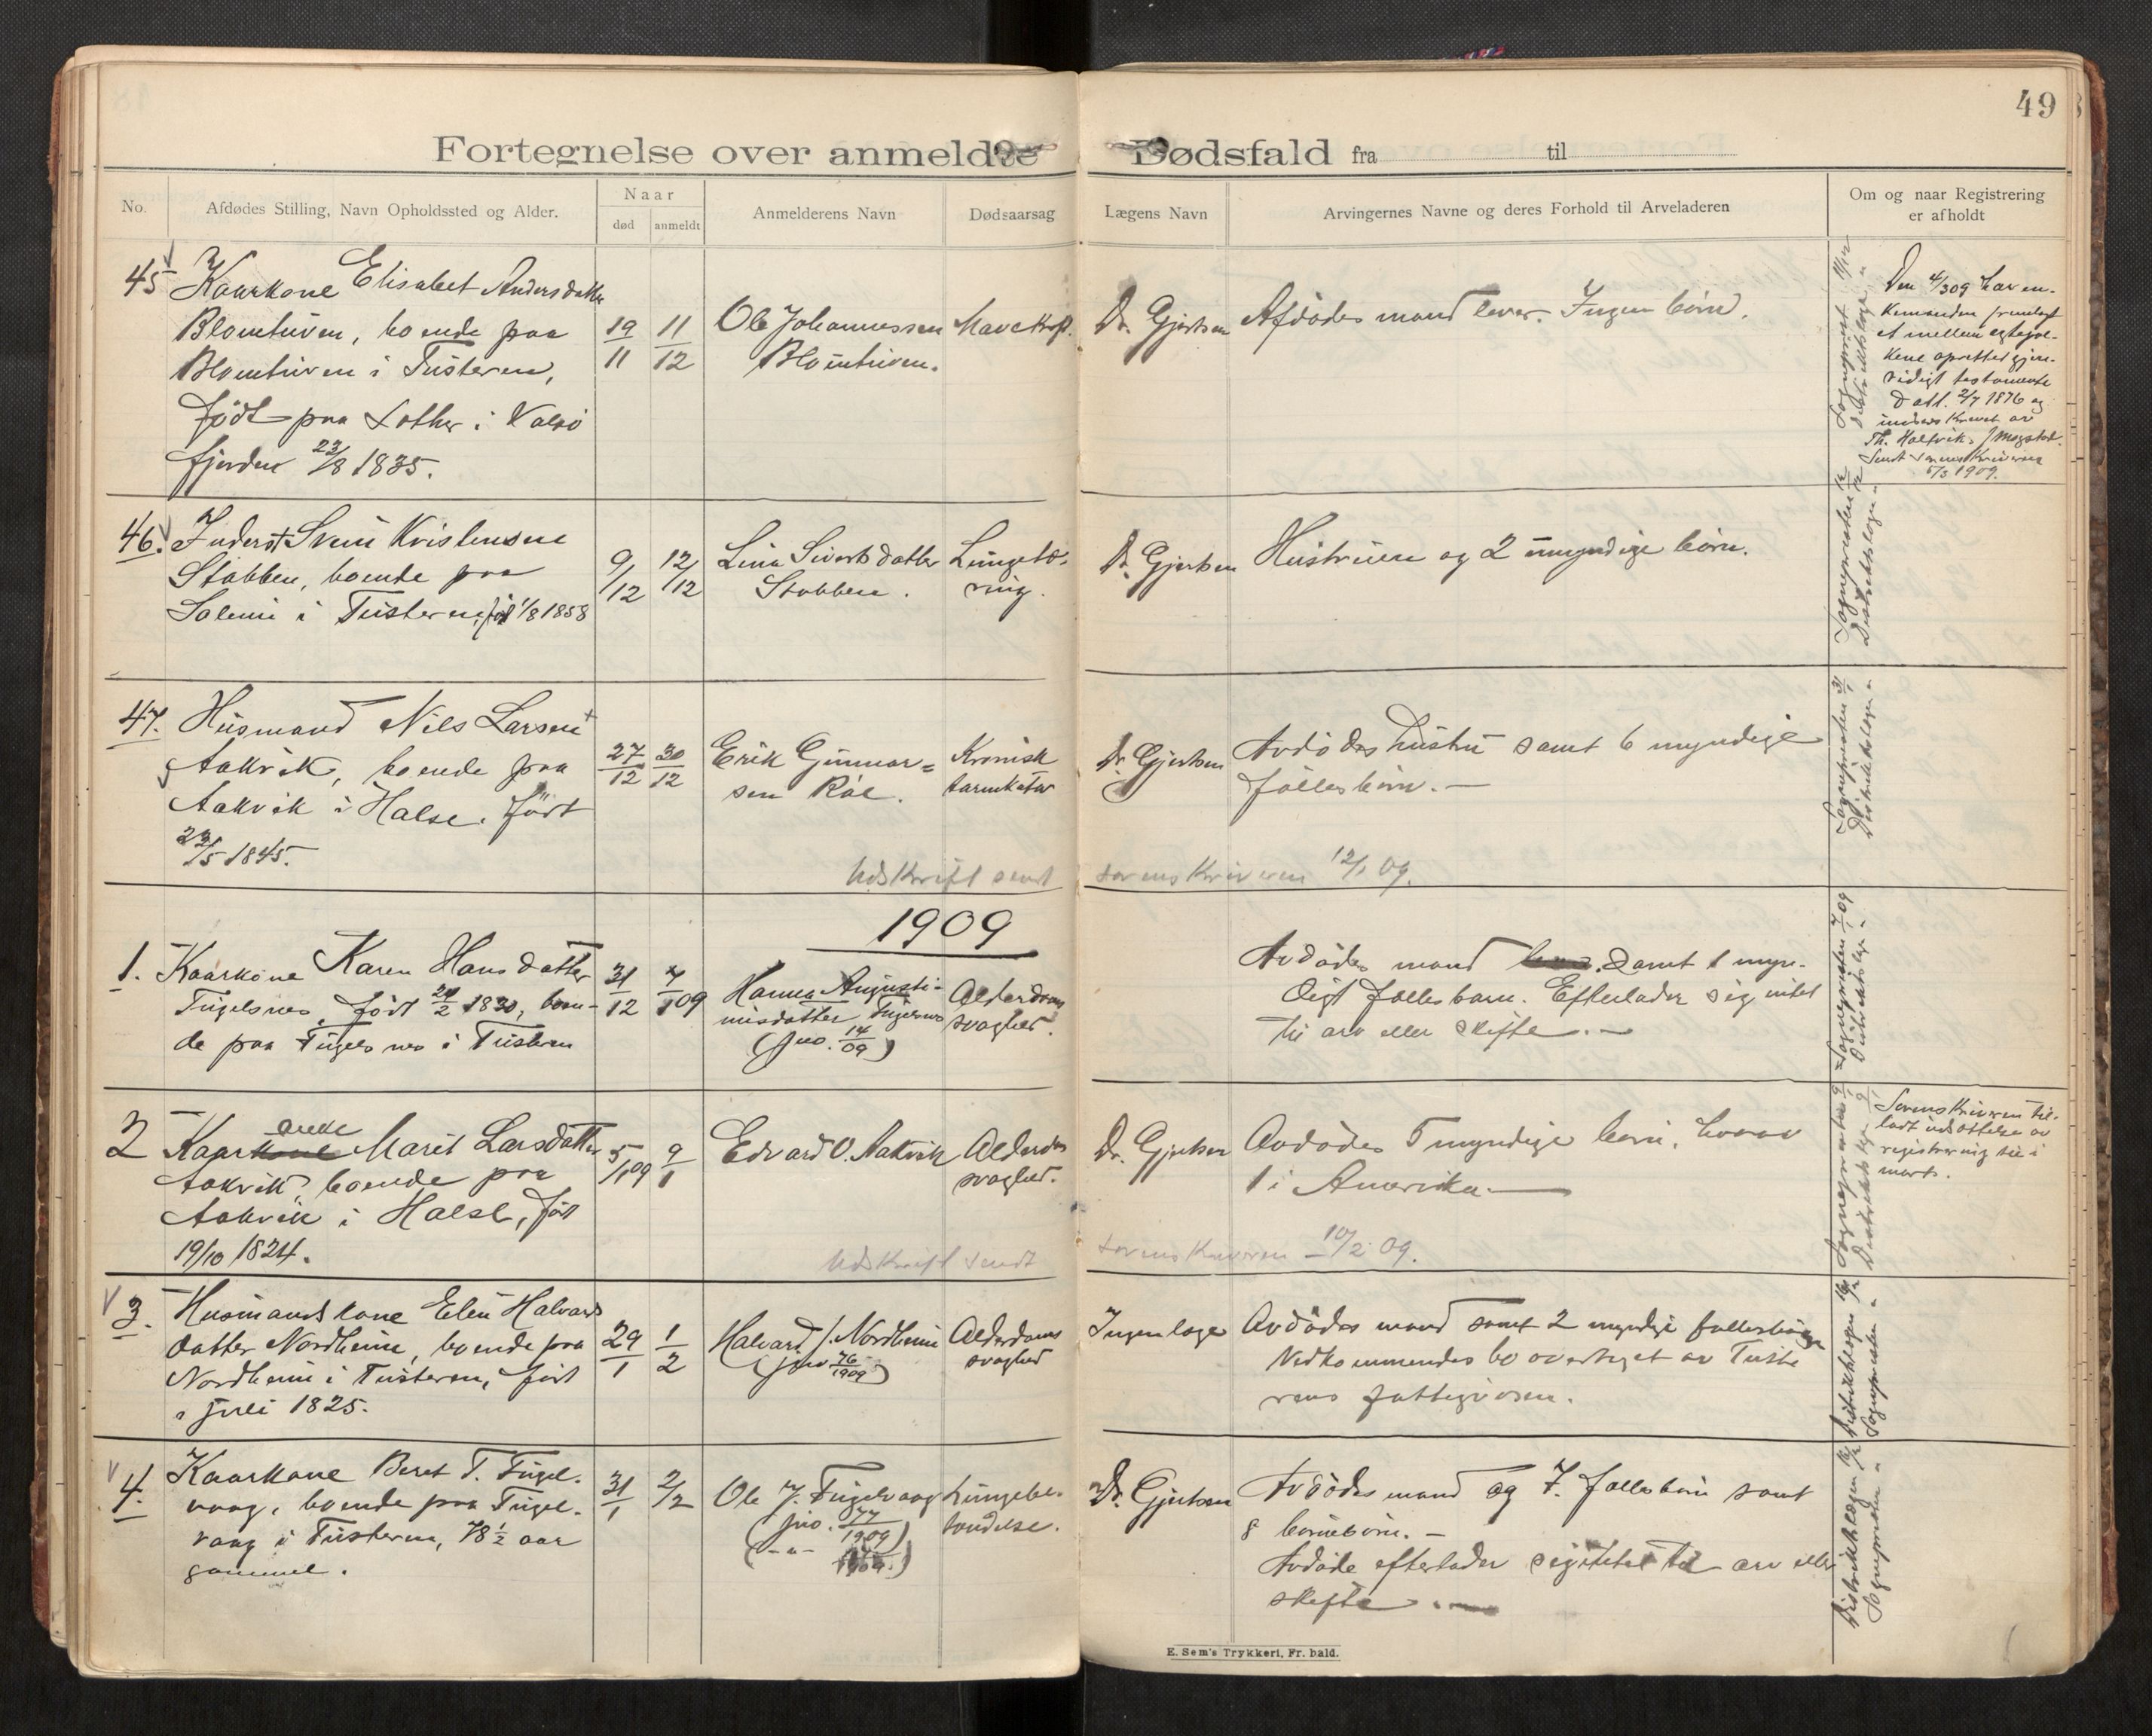 49
Fortegnelse over anmeldte Dødsfald fra til
No.
Afdødes Stilling, Navn Opholdssted og Alder.
Naar
død
anmeldt
Anmelderens Navn
Dødsaarsag
Lægens Navn
Arvingernes Navne og deres Forhold til Arveladeren
Om og naar Registrering
er afholdt
45
Kaarkone Elisabet Andersdatter
boende paa
i Tusteren,
født paa i Valsø
fjorden 23/8 1835.
19/11
11/12
Ole Johannessen
Mavekræft.
Dr. Gjertsen
Afdødes mand lever. Ingen børn.
Den 4/3 09 har en-
kemanden fremlagt
et mellem ægtefol-
kene oprettet gjen-
sidigt testamente
dat. 2/7 1876 og
Sendt sorenskriveren
5/3 1909.
46.
Inderst Svein Kristensen
Stabben, boende paa
Solem i Tusteren, født 1/8 1858
9/12
12/12
Lina Sivertsdatter
Stabben.
Lungetæ-
ring.
Dr. Gjertsen
Hustruen og 2 umyndige børn.
47.
Husmand Nils Larsen
Aakvik, boende paa
Aakvik i Halse. Født
23/5 1845.
27/12
30/12
Erik Gunnar=
sen Røe.
Kronisk
tarmkatar
Dr. Gjertsen
Avdødes hustru samt 6 myndige
fællesbørn. —
Udskrift sendt sorenskriveren 12/1 09.
1909
1.
Kaarkone Karen Hansdatter
Fugelsnes, født 20/2 1830, boen-
de paa Fugelsnes i Tusteren
31/12
7/1 09
Hanna Augusti-
nusdatter Fugelsnes
(jno. 14/09)
Alderdoms
svaghed.
Avdødes mand samt 1 myn-
digt fællesbarn. Efterlader sig intet
til arv eller skifte. —
2
Kaarenke Marit Larsdatter
Aakvik, boende paa
Aakvik i Halse, født
19/10 1824.
5/1 09
9/1
Edvard O. Aakvik
Alderdoms
svaghed.
Dr. Gjertsen
Avdødes 5 myndige børn, hvorav
1 i Amerika. —
Sorenskriveren til-
ladt udsættelse av
registrering til i
marts.
Udskrift sendt sorenskriveren 10/2 09.
3.
Husmandskone Elen Halvards
datter Nordheim, boende paa
Nordheim i Tusteren, født
i juli 1825.
29/1
1/2
Halvard J. Nordheim
(jno 76/1909)
Alderdoms
svaghed
Ingen læge
Avdødes mand samt 2 myndige fællesbørn
Vedkommendes bo overtaget av Tuste
rens fattigvæsen.
4.
Kaarkone Beret T. Fugel-
vaag, boende paa Fugel-
vaag i Tusteren, 78 1/2 aar
gammel.
31/1
2/2
Ole J. Fugelvaag
(jno. 77/1909)
Lungebe-
tændelse.
Dr. Gjertsen
Avdødes mand og 7 fællesbørn samt
8 børnebørn. —
Avdøde efterlader sig intet til arv eller
skifte.
E. Sem's Trykkeri, Fr. hald.